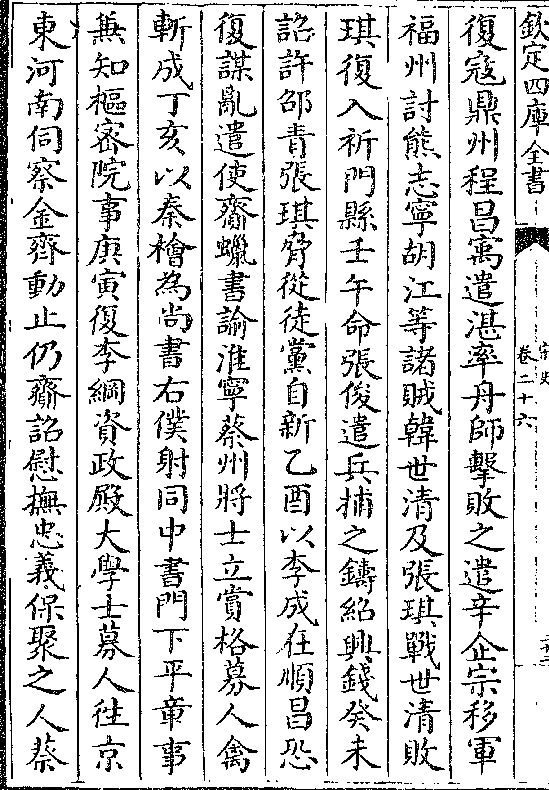 欽定四庫全書
宋史
卷二十六
復寇鼎州程昌寓遣湛率舟師擊敗之遣辛企宗移軍
福州討熊志寧胡江等諸賊韓世清及張琪戰世清敗
琪復入祈門縣壬午命張俊遣兵捕之鑄紹興錢癸未
詔許邵青張琪脅從徒黨自新乙酉以李成在順昌恐
復謀亂遣使齎蠟書諭淮寧蔡州將士立賞格募人禽
斬成丁亥以秦檜為尚書右僕射同中書門下平章事
兼知樞密院事庚寅復李綱資政殿大學士募人往京
東河南伺察金齊動止仍齎詔慰撫忠義保聚之人蔡